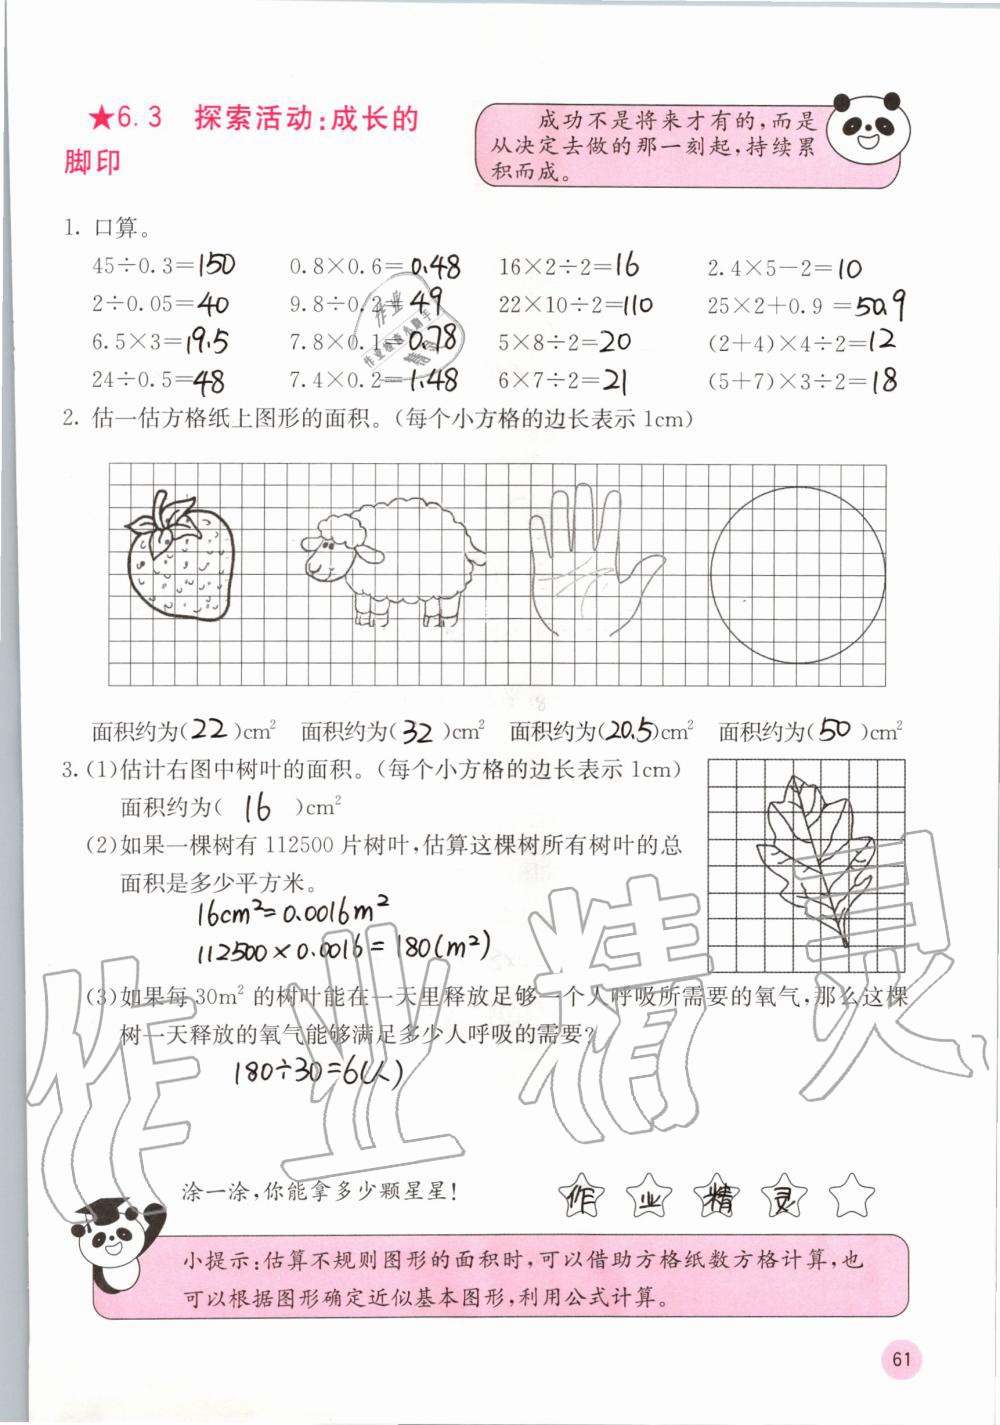 ★6.3 探索活动:成长的
脚印
成功不是将来才有的,而是
从决定去做的那一刻起,持续累
积而成。
1. 口算。
45÷0.3=150 0.8×0.6=0.48 16×2÷2=16 2.4×5-2=10
2÷0.05=40 9.8÷0.2=49 22×10÷2=110 25×2+0.9=50.9
6.5×3=19.5 7.8×0.1=0.78 5×8÷2=20 (2+4)×4÷2=12
24÷0.5=48 7.4×0.2=1.48 6×7÷2=21 (5+7)×3÷2=18
2. 估一估方格纸上图形的面积。(每个小方格的边长表示1cm)
面积约为(22)cm² 面积约为(32)cm² 面积约为(20.5)cm² 面积约为(50)cm²
3.(1)估计右图中树叶的面积。(每个小方格的边长表示1cm)
面积约为(16)cm²
(2)如果一棵树有112500片树叶,估算这棵树所有树叶的总
面积是多少平方米。
16cm²=0.0016m²
112500×0.0016=180(m²)
(3)如果每30m²的树叶能在一天里释放足够一个人呼吸所需要的氧气,那么这棵
树一天释放的氧气能够满足多少人呼吸的需要?
180÷30=6(人)
作业精灵
涂一涂,你能拿多少颗星星!
作 业 精 灵
小提示:估算不规则图形的面积时,可以借助方格纸数方格计算,也
可以根据图形确定近似基本图形,利用公式计算。
61